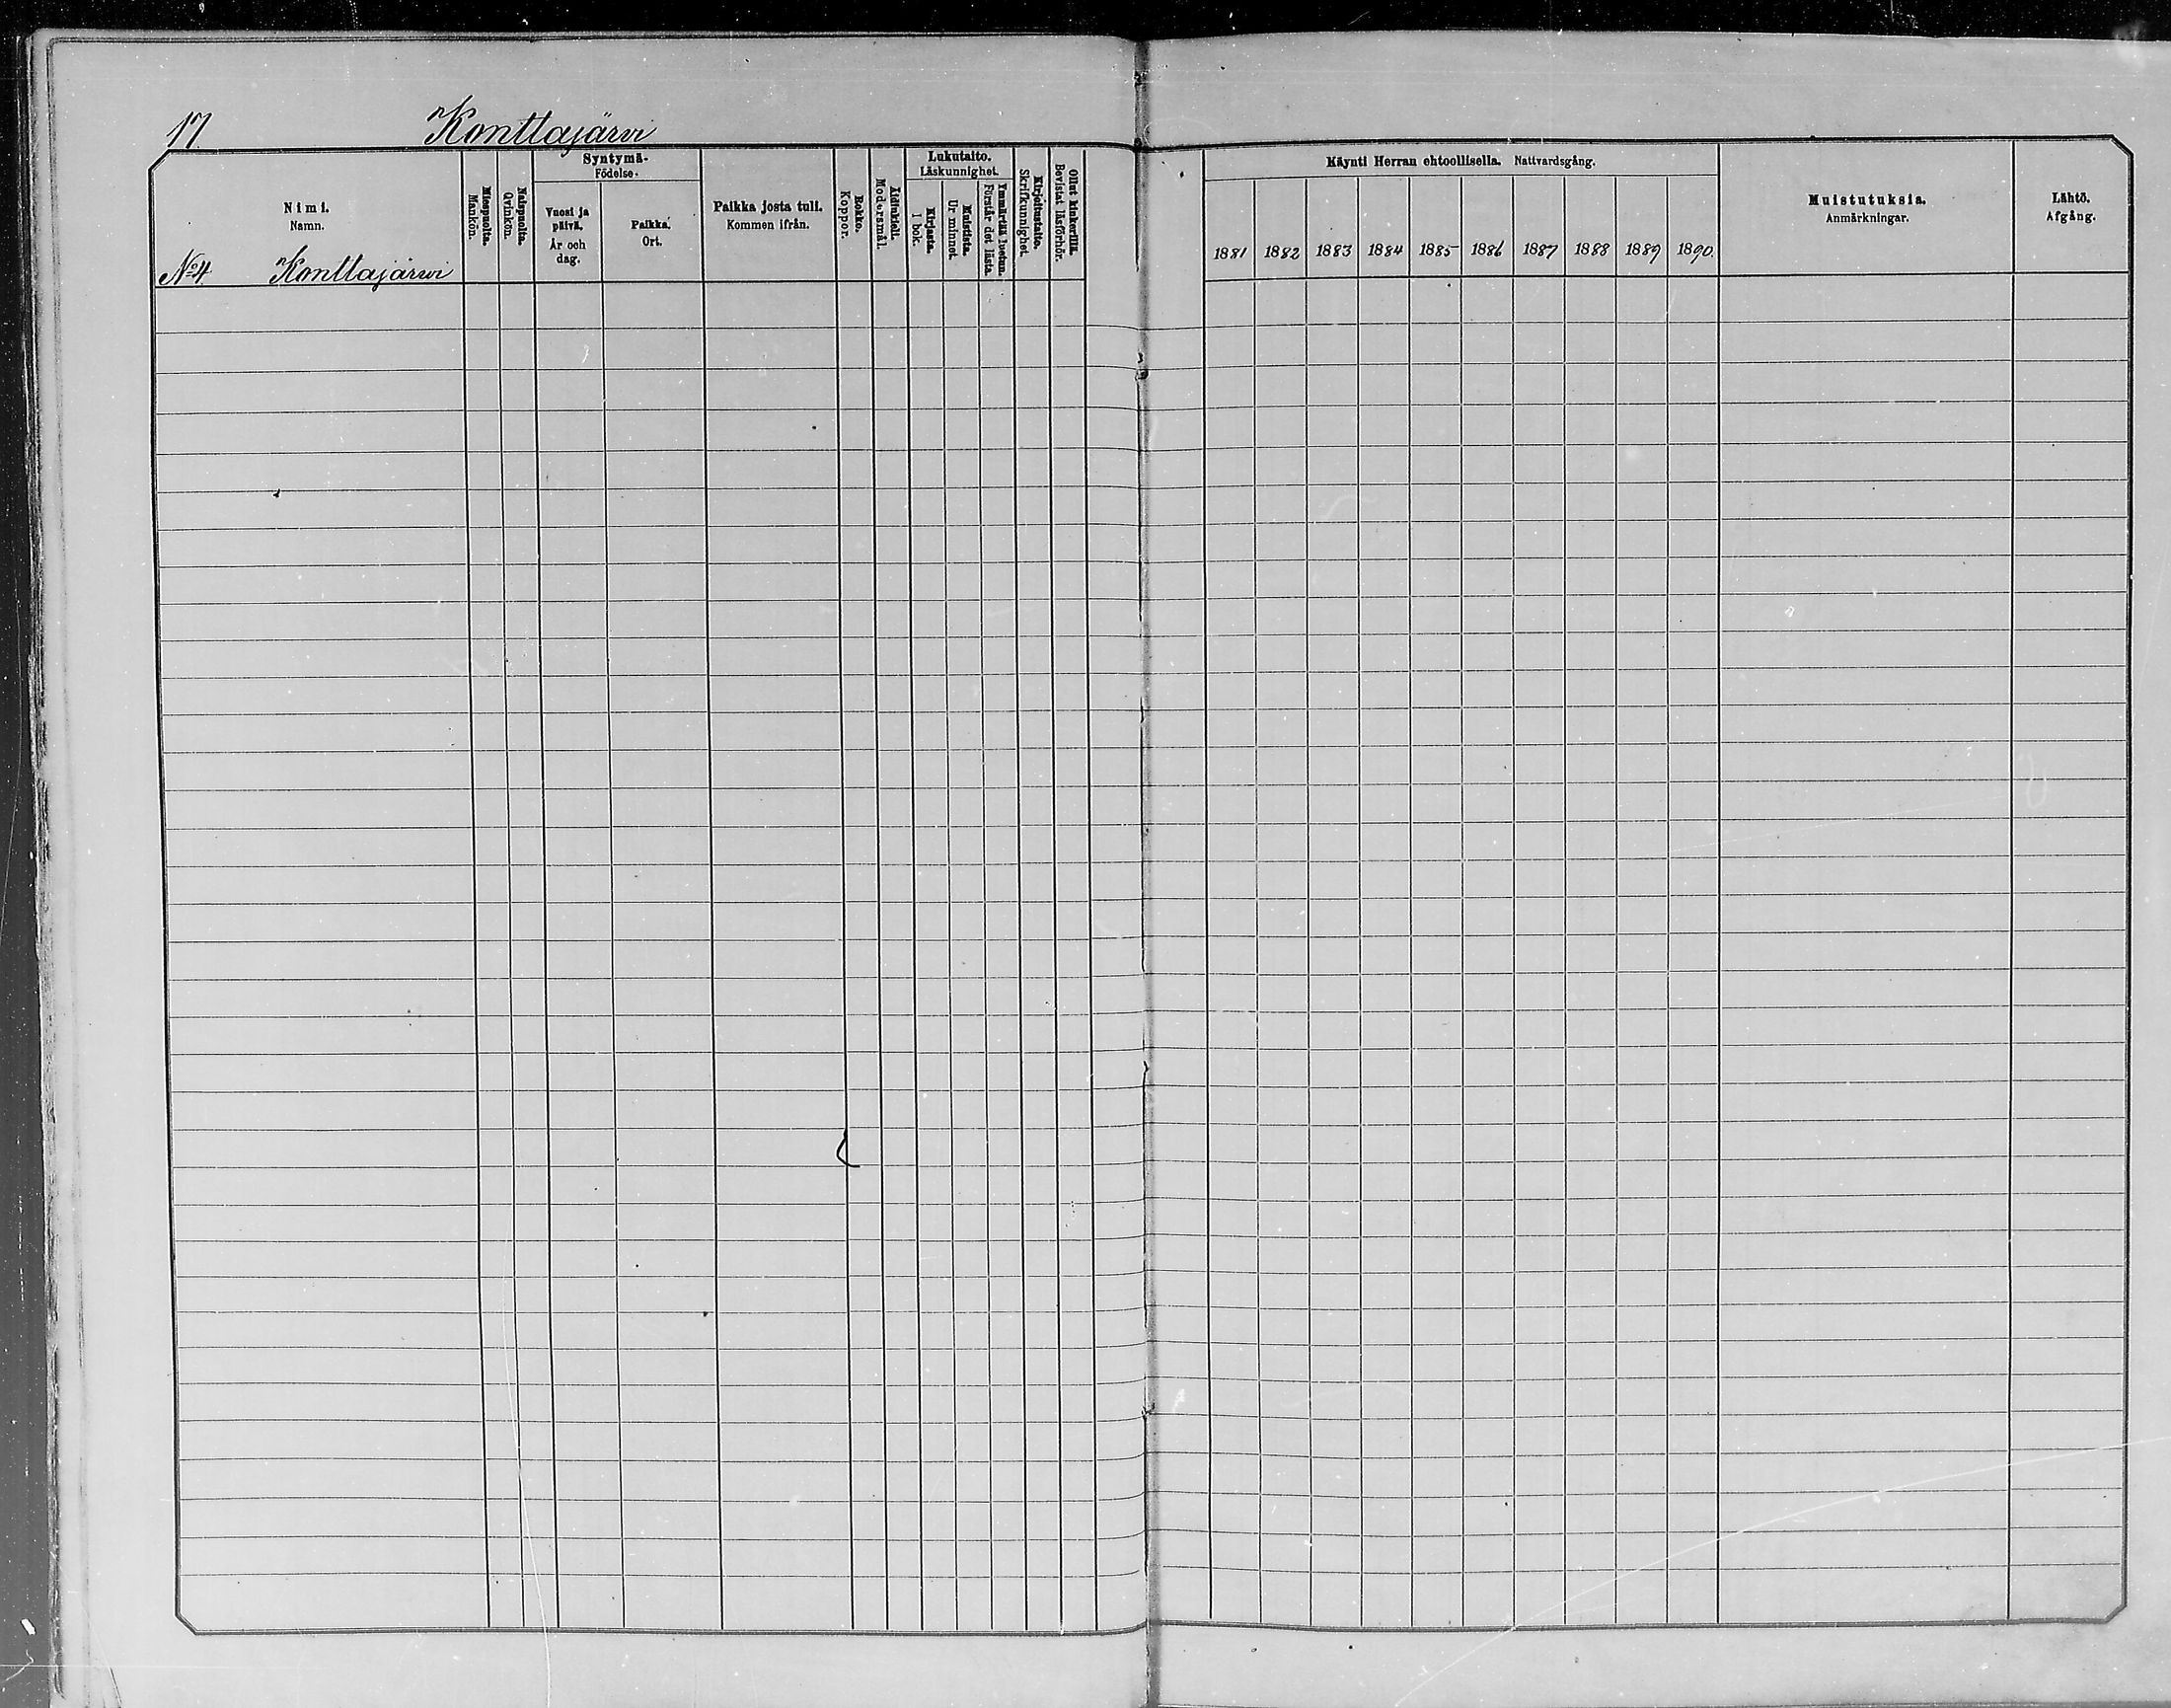 17. Konttajärvi
Nimi.
Namn.
No 4 Konttajärvi
Miespuolta.
Mankön.
Naispuolta.
Qvinkön.
Syntymä-
Födelse-
Vuosi ja
päivä.
År och
dag.
Paikka.
Ort.
Paikka josta tuli.
Kommen ifrån.
Rokko.
Koppor.
Äidinkieli.
Modersmål.
Lukutaito.
Läskunnighet.
Kirjasta.
I bok.
Muistista.
Ur minnet
Ymmärtää luetun.
Förstår det lästa
Kirjoitustaito.
Skrifkunnighet
Ollut kinkerillä.
Bevistat läsförhör.
Käynti Herran ehtoollisella. Nattvardsgång.
1881 1882 1883 1884 1885 1886 1887 1888 1889 1890.
Muistutuksia.
Anmärkningar.
Lähtö.
Afgång.